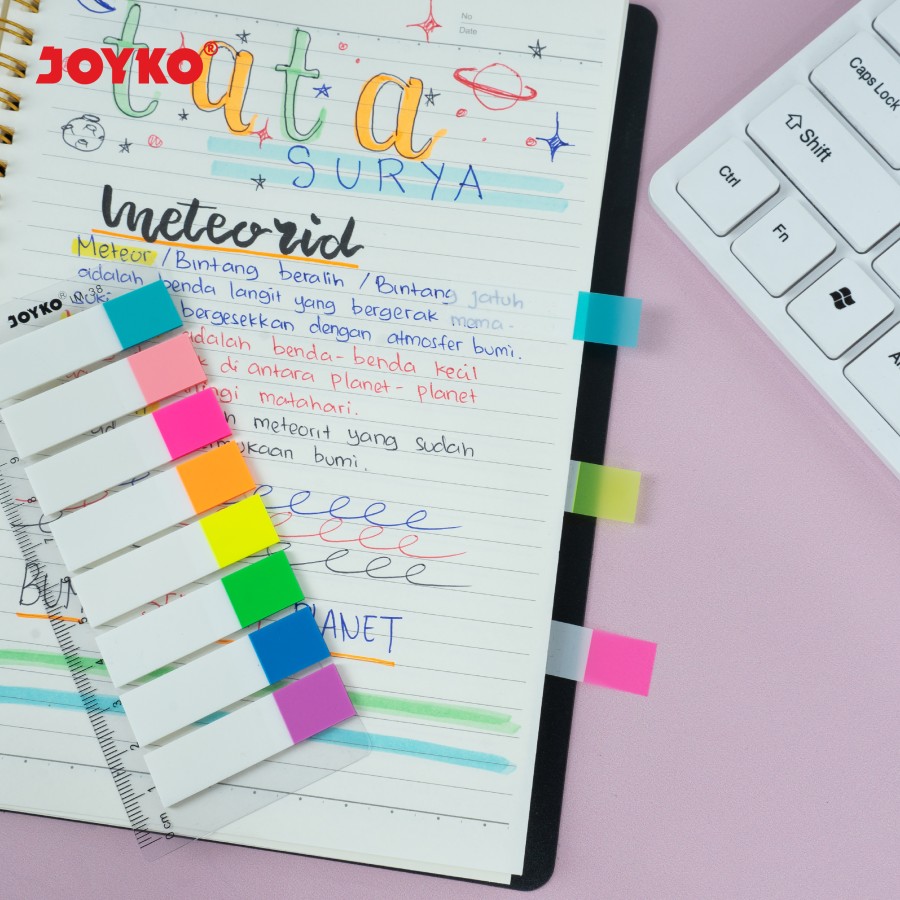 No
Date
JOYKO®
tata
SURYA
meteorid
Meteor / Bintang beralih / Bintang jatuh
adalah benda langit yang bergerak mema-
bergesekkan dengan atmosfer bumi.
adalah benda-benda kecil
di antara planet-planet
matahari.
meteorit yang sudah
bumi.
PLANET
JOYKO®
0 cm 1 2 3 4
Caps Lock
Shift
Ctrl
Fn